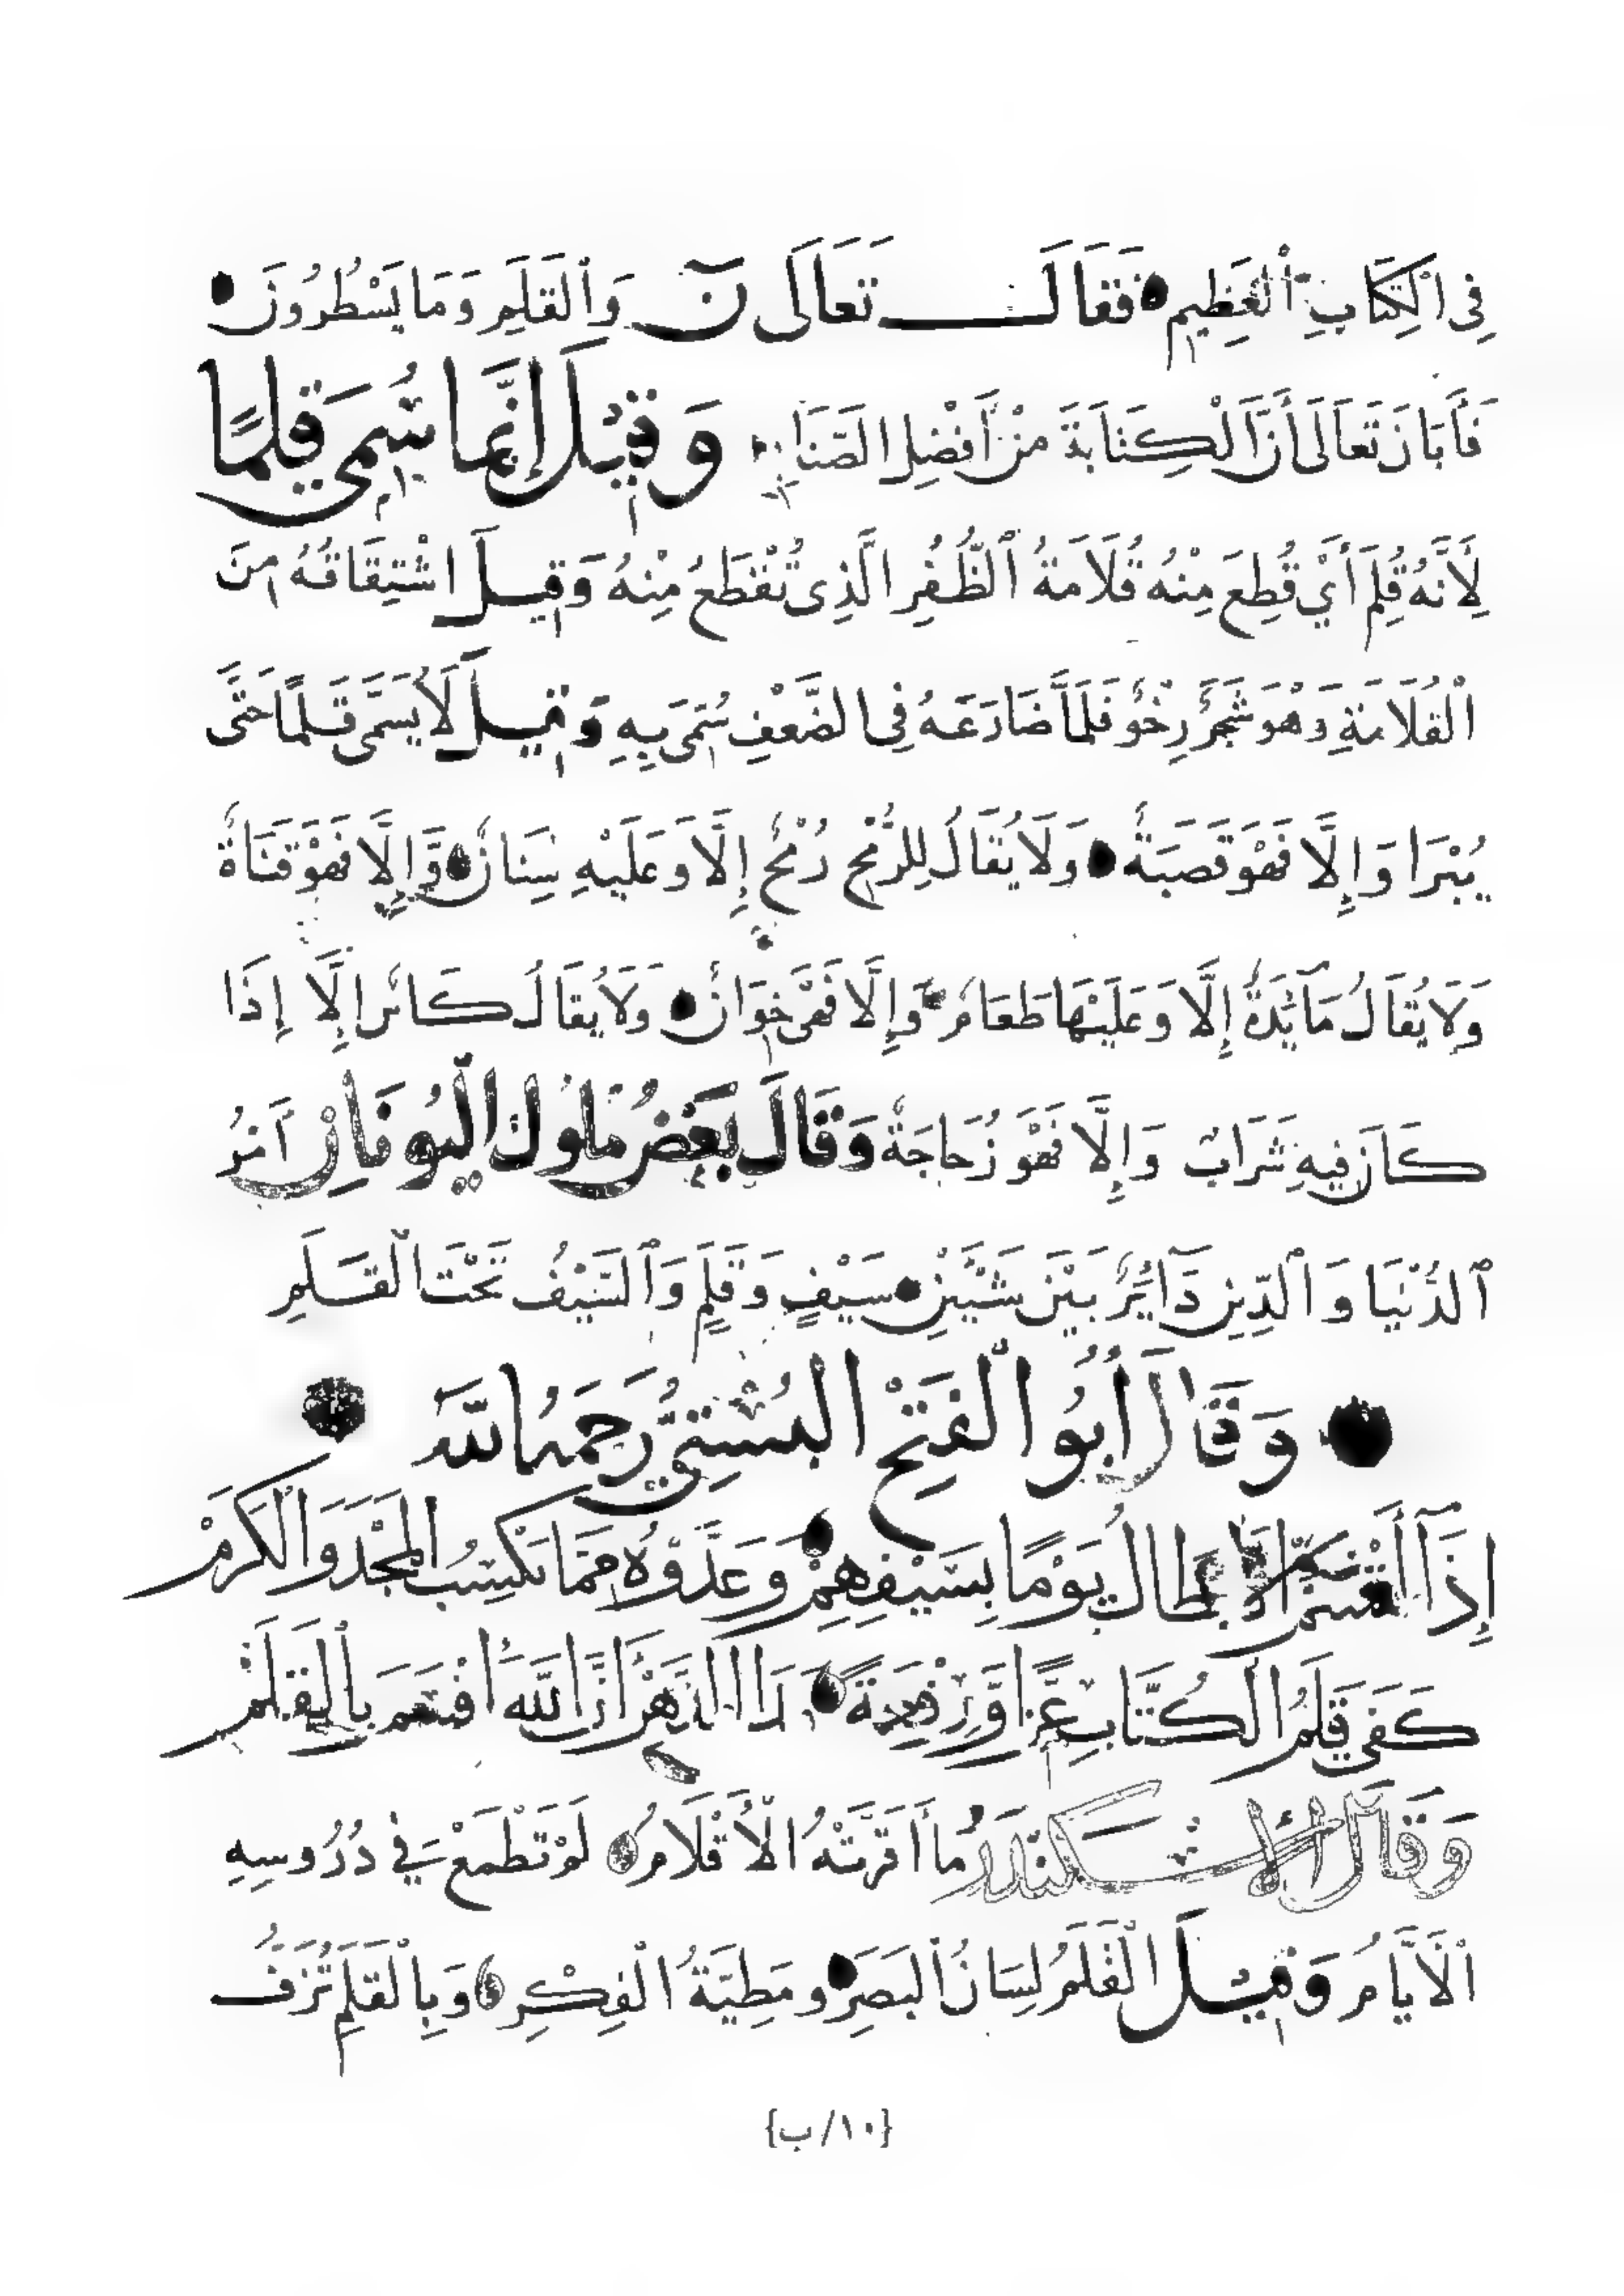 فِي الْكِتَابِ الْعَظِيمِ فَقَالَ تَعَالَى نَ وَالْقَلَمِ وَمَا يَسْطُرُونَ
فَأَبَانَ تَعَالَى أَنَّ الْكِتَابَةَ مِنْ أَفْضَلِ الصَّنَا وَقِيْلَ إِنَّمَا سُمِّيَ قَلَمًا
لِأَنَّهُ قُلِمَ أَيْ قُطِعَ مِنْهُ قُلَامَةُ الظُّفُرِ الَّذِي تُقْطَعُ مِنْهُ وَقِيلَ اشْتِقَاقُهُ مِنَ
الْقُلَامَةِ وَهُوَ شَجَرٌ رِخْوٌ فَلَمَّا ضَارَعَهُ فِي الضَّعْفِ سُمِّيَ بِهِ وَقِيلَ لَا يُسَمَّى قَلَمًا حَتَّى
يُبْرَا وَإِلَّا فَهْوَ قَصَبَةٌ وَلَا يُقَالُ لِلرُّمْحِ رُمْحٌ إِلَّا وَعَلَيْهِ سِنَانٌ وَإِلَّا فَهْوَ قَنَاةٌ
وَلَا يُقَالُ مَائِدَةٌ إِلَّا وَعَلَيْهَا طَعَامٌ وَإِلَّا فَهْيَ خِوَانٌ وَلَا يُقَالُ كَاسٌ إِلَّا إِذَا
كَانَ فِيهِ شَرَابٌ وَإِلَّا فَهْوَ زُجَاجَةٌ وَقَالَ بَعْضُ مُلُوكِ الْيُونَانِ أَمْرُ
الدُّنْيَا وَالدِّينِ دَائِرٌ بَيْنَ شَيْئَيْنِ سَيْفٍ وَقَلَمٍ وَالسَّيْفُ تَحْتَ الْقَلَمِ
وَقَالَ أَبُو الْفَتْحِ الْبُسْتِيُّ رَحِمَهُ اللَّهُ
إِذَا أَقْسَمَ الْأَبْطَالُ يَوْمًا بِسَيْفِهِمْ وَعَدُّوْهُ مِمَّا يُكْسِبُ الْمَجْدَ وَالْكَرَمْ
كَفَى قَلَمُ الْكُتَّابِ عِزًّا وَرِفْعَةً مَدَا الدَّهْرِ أَنَّ اللَّهَ أَقْسَمَ بِالْقَلَمْ
وَقَالَ الْإِسْكَنْدَرُ مَا أَقَرَّتْهُ الْأَقْلَامُ لَمْ تَطْمَعْ فِي دُرُوسِهِ
الْأَيَّامُ وَقِيْلَ الْقَلَمُ لِسَانُ الْبَصَرِ وَمَطِيَّةُ الْفِكْرِ وَبِالْقَلَمِ تُزَفُّ
{١٠/ب}